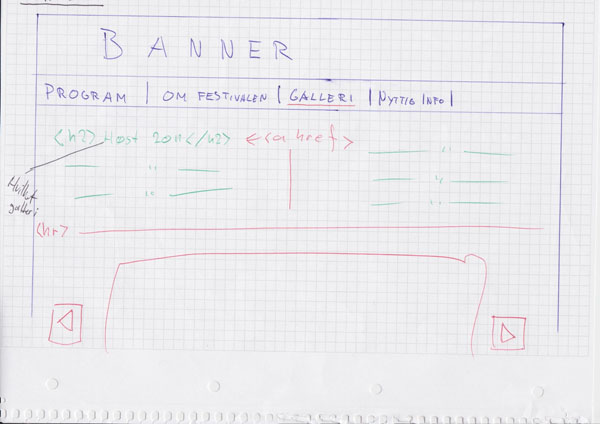 BANNER
PROGRAM | OM FESTIVALEN | GALLERI | NYTTIG INFO |
<h2> Høst 2011 </h2> ← <a href>
— " — — " —
— " — — " —
— " — — " —
galleri
<hr>